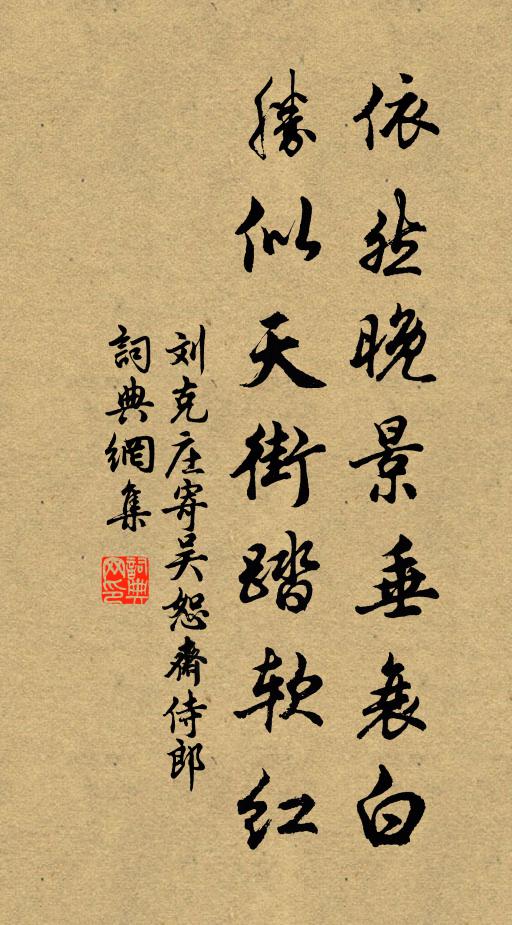 依然晚景垂衰白
勝似天街踏软红
刘克庄寄吴恕斋侍郎
詞典網集
詞典網印